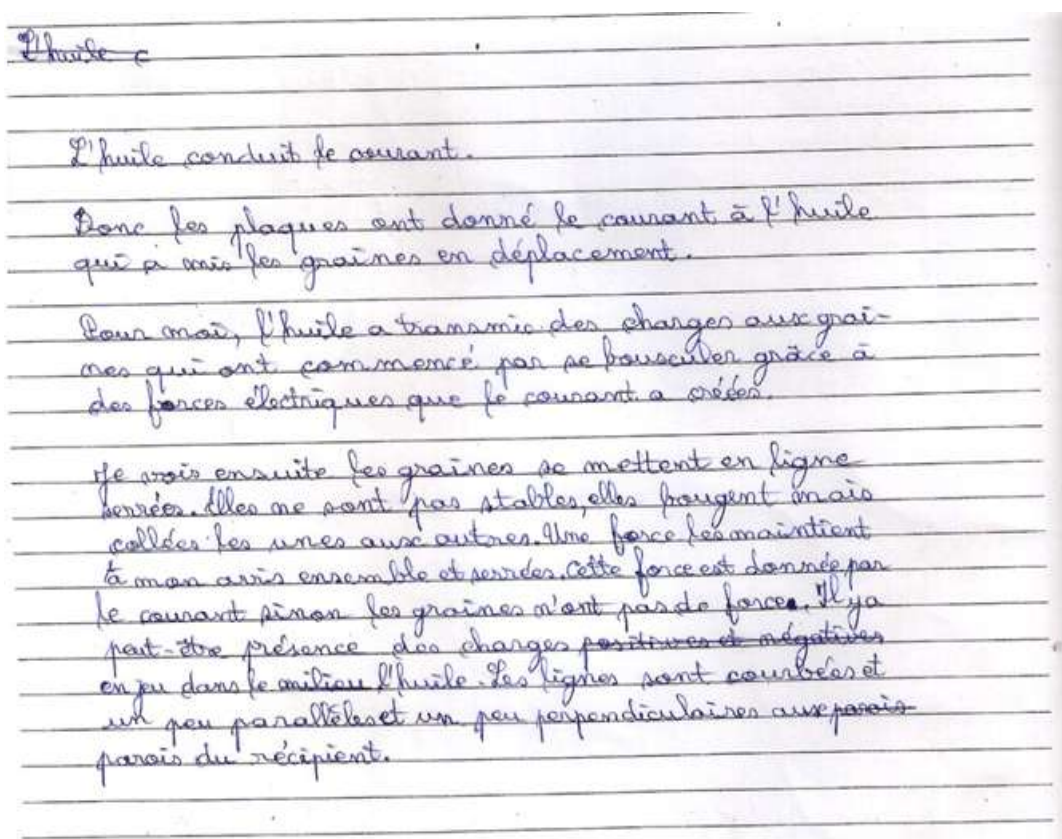 L'huile c
L'huile conduit le courant.
Donc les plaques ont donné le courant à l'huile
qui a mis les graines en déplacement.
Pour moi, l'huile a transmis des charges aux grai-
nes qui ont commencé par se bousculer grâce à
des forces électriques que le courant a créées.
Je vois ensuite les graines se mettent en ligne
serrées. Elles ne sont pas stables, elles bougent mais
collées les unes aux autres. Une force les maintient
à mon avis ensemble et serrées. Cette force est donnée par
le courant sinon les graines n'ont pas de force. Il y a
peut-être présence des charges positives et négatives
en jeu dans le milieu l'huile. Les lignes sont courbées et
un peu parallèles et un peu perpendiculaires aux parois
parois du récipient.